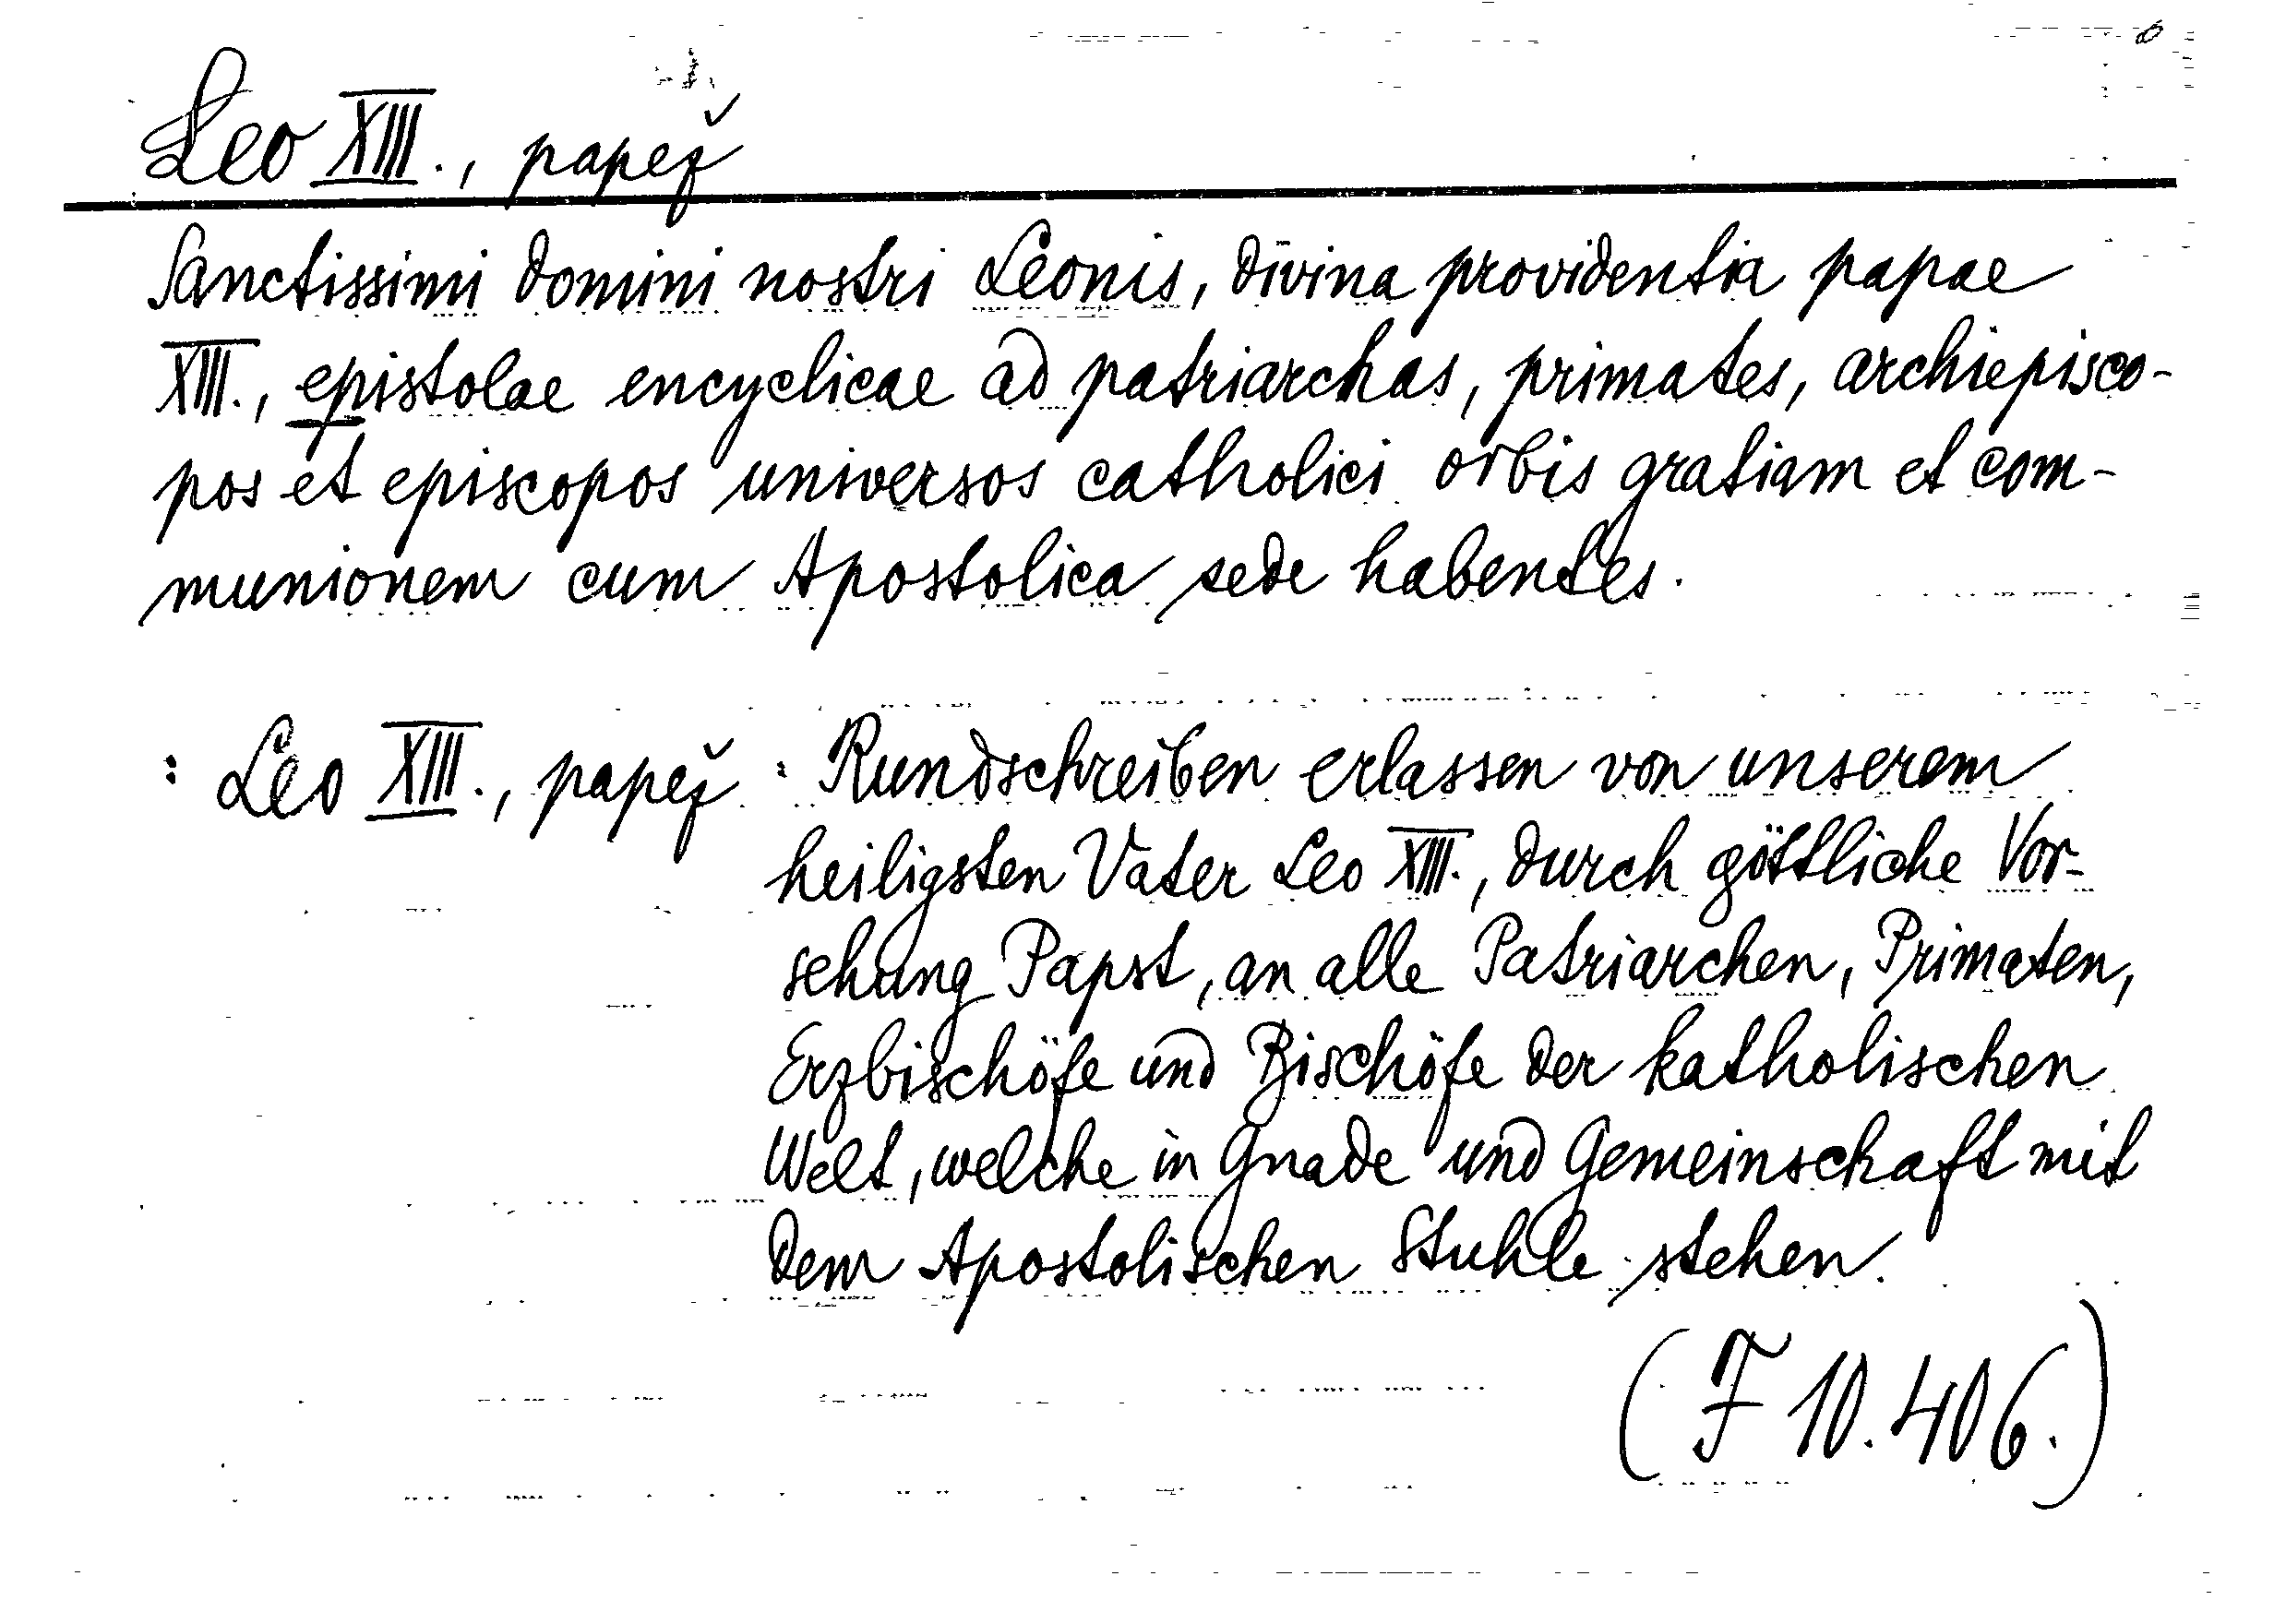 Leo XIII., papež
Sanctissimi domini nostri Leonis, divina providentia papae
XIII., epistolae encyclicae ad patriarchas, primates, archiepisco-
pos et episcopos universos catholici orbis gratiam et com-
munionem cum Apostolica sede habentes.
: Leo XIII., papež : Rundschreiben erlassen von unserem
heiligsten Vater Leo XIII., durch göttliche Vor-
sehung Papst, an alle Patriarchen, Primaten,
Erzbischöfe und Bischöfe der katholischen
Welt, welche in Gnade und Gemeinschaft mit
dem Apostolischen Stuhle stehen.
(F 10.406.)